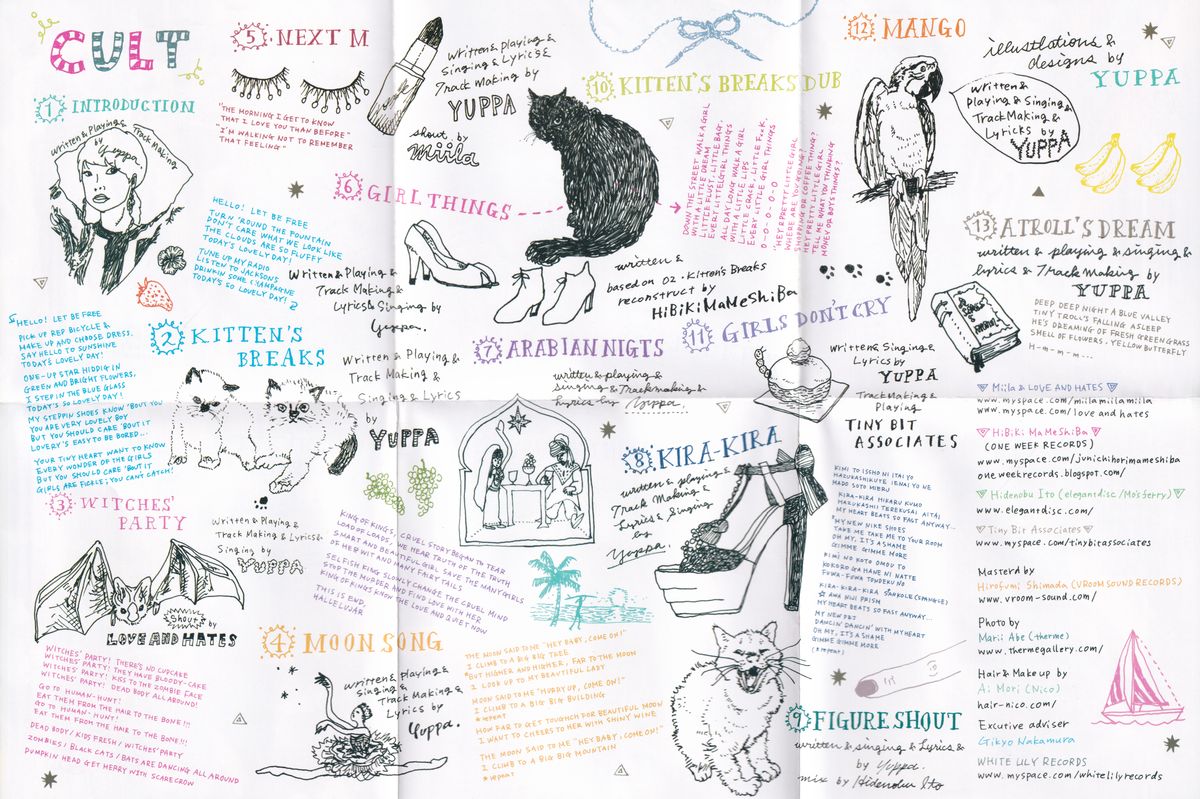 CULT
1 INTRODUCTION
Written & Playing &
Track Making
by Yuppa
HELLO! LET BE FREE
TURN 'ROUND THE FOUNTAIN
DON'T CARE WHAT WE LOOK LIKE
THE CLOUDS ARE SO FLUFFY
TODAY'S LOVELY DAY!
TUNE UP MY RADIO
LISTEN TO JACKSONS
DRINKIN SOME CHAMPAGNE
TODAY'S SO LOVELY DAY!
2 KITTEN'S
BREAKS
HELLO! LET BE FREE
PICK UP RED BICYCLE &
MAKE UP AND CHOOSE DRESS.
SAY HELLO TO SUNSHINE
TODAY'S LOVELY DAY!
ONE-UP STAR HIDDIG IN
GREEN AND BRIGHT FLOWERS,
I STEP IN THE BLUE GLASS
TODAY'S SO LOVELY DAY!
MY STEPPIN SHOES KNOW 'BOUT YOU
YOU ARE VERY LOVELY BOY
BUT YOU SHOULD CARE 'BOUT IT
LOVERY'S EASY TO BE BORED...
YOUR TINY HEART WANT TO KNOW
EVERY WONDER OF THE GIRLS
BUT YOU SHOULD CARE 'BOUT IT
GIRLS ARE FICKLE; YOU CAN'T CATCH!
Written & Playing &
Track Making &
Singing & Lyrics
by
YUPPA
3 WITCHES'
PARTY
Written & Playing &
Track Making & Lyrics &
Singing by
YUPPA
Shout's by
LOVE AND HATES
WITCHES' PARTY! THERE'S NO CUPCAKE
WITCHES' PARTY! THEY HAVE BLOODY-CAKE
WITCHES' PARTY! KISS TO THE ZOMBIE FACE
WITCHES' PARTY! DEAD BODY ALL AROUND!
GO TO HUMAN-HUNT!
EAT THEM FROM THE HAIR TO THE BONE!!!
GO TO HUMAN-HUNT!
EAT THEM FROM THE HAIR TO THE BONE!!!
DEAD BODY / KIDS FRESH / WITCHES' PARTY
ZOMBIES / BLACK CATS / BATS ARE DANCING ALL AROUND
PUMPKIN HEAD GET MERRY WITH SCARECROW
4 MOON SONG
written & playing &
singing &
Track Making &
Lyrics by
Yuppa.
THE MOON SAID TO ME "HEY BABY, COME ON!"
I CLIMB TO A BIG BIG TREE
BUT HIGHER AND HIGHER, FAR TO THE MOON
I LOOK UP TO MY BEAUTIFUL LADY
MOON SAID TO ME "HURRY UP, COME ON!"
I CLIMB TO A BIG BIG BUILDING
*repeat
HOW FAR TO GET TOUGHCH FOR BEAUTIFUL MOON
I WANT TO CHEERS TO HER WITH SHINY WINE
THE MOON SAID TO ME "HEY BABY, COME ON!"
I CLIMB TO A BIG BIG MOUNTAIN
*repeat
5 NEXT M
"THE MORNING I GET TO KNOW
THAT I LOVE YOU THAN BEFORE"
"I'M WALKING NOT TO REMEMBER
THAT FEELING"
Written & Playing &
Singing & Lyrics &
Track Making by
YUPPA
shout by
miila
6 GIRL THINGS
Written & Playing &
Track Making &
Lyrics & Singing by
Yuppa.
DOWN THE STREET WALK A GIRL
WITH A LITTLE DREAM
LITTLE FLUST, LITTLE BAG.
EVERY LITTELGIRL THINGS
ALL DAY LONG WALK A GIRL
WITH A LITTLE LIPS
LITTLE CRACK, LITTLE F*CK,
EVERY LITTLE GIRL THINGS
O-O-O-O-O
"HEY PRETTY LITTLE GIRL
WHERE ARE YOU GOING?
SHOPPIN' OR COFFEE THING?
HEY PRETTY LITTLE GIRL
TELL ME WHAT YOU THINKING
MONEY OR BOYS THINGS?"
7 ARABIAN NIGTS
written & playing &
singing & Trackmaking &
lyrics by Yuppa
KING OF KING'S CRUEL STORY BEGAN
LOAD OF LOADS, WE HEAR TRUTH OF THE TRUTH
SMART AND BEAUTIFUL GIRL SAVE THE MANY GIRLS
OF HER WIT AND MANY FAIRY TAILS
SELFISH KING SLOWLY CHANGE THE CRUEL MIND
STOP THE MURDER AND FIND LOVE WITH HER
KING OF KINGS KNOW THE LOVE AND QUIET NOW
THIS IS END,
HALLELUAR
8 KIRA-KIRA
written & playing &
Track Making &
Lyrics & Singing
by
Yuppa.
KIMI TO ISSHO NI ITAI YO
HAZUKASHIKUTE IENAI YO NE
MADO SOTO MIERU
KIRA-KIRA HIKARU KUMO
HAZUKASHI TEREKUSAI AITAI
MY HEART BEATS SO FAST ANYWAY...
"MY NEW NIKE SHOES
TAKE ME TAKE ME TO YOUR ROOM
OH MY, IT'S A SHAME
GIMME GIMME MORE
KIMI NO KOTO OMOU TO
KOKORO GA HANE NI NATTE
FUWA-FUWA TONDEKU NO
KIRA-KIRA SPANKOLE (SPANGLE)
AWA NIJI PRISM
MY HEART BEATS SO FAST ANYWAY...
MY NEW PET
DANCIN' DANCIN' WITH MY HEART
OH MY, IT'S A SHAME
GIMME GIMME MORE
(repeat)
9 FIGURE SHOUT
written & singing & Lyrics &
by Yuppa.
mix by Hidenobu Ito
10 KITTEN'S BREAKS DUB
written &
based on 02. Kitten's Breaks
reconstruct by
HiBiKi MaMeShiBa
11 GIRLS DON'T CRY
Written & Singing &
Lyrics by
YUPPA
Track Making &
Playing
TINY BIT
ASSOCIATES
12 MANGO
Written &
Playing & Singing &
Track Making &
Lyricks by
YUPPA
illustlations &
designs by
YUPPA
13 A TROLL'S DREAM
written & playing & singing &
lyrics & Track making by
YUPPA
DEEP DEEP NIGHT A BLUE VALLEY
TINY TROLL'S FALLING ASLEEP
HE'S DREAMING OF FRESH GREEN GRASS
SHELL OF FLOWERS, YELLOW BUTTERFLY
H-m-m-m...
Miila & LOVE AND HATES
www.myspace.com/miilamiilamiila
www.myspace.com/love and hates
HiBiKi MaMeShiBa
(ONE WEEK RECORDS)
www.myspace.com/jvnichihorimameshiba
oneweekrecords.blogspot.com/
Hidenobu Ito (elegantdisc/Mo'sferry)
www.elegantdisc.com/
Tiny Bit Associates
www.myspace.com/tinybitassociates
Masterd by
Hirofumi Shimada (VROOM SOUND RECORDS)
www.vroom-sound.com/
Photo by
Marii Abe (therme)
www.thermegallery.com/
Hair & Makeup by
Ai Mori (Nico)
hair-nico.com/
Excutive adviser
Gikyo Nakamura
WHITE LILY RECORDS
www.myspace.com/whitelilyrecords